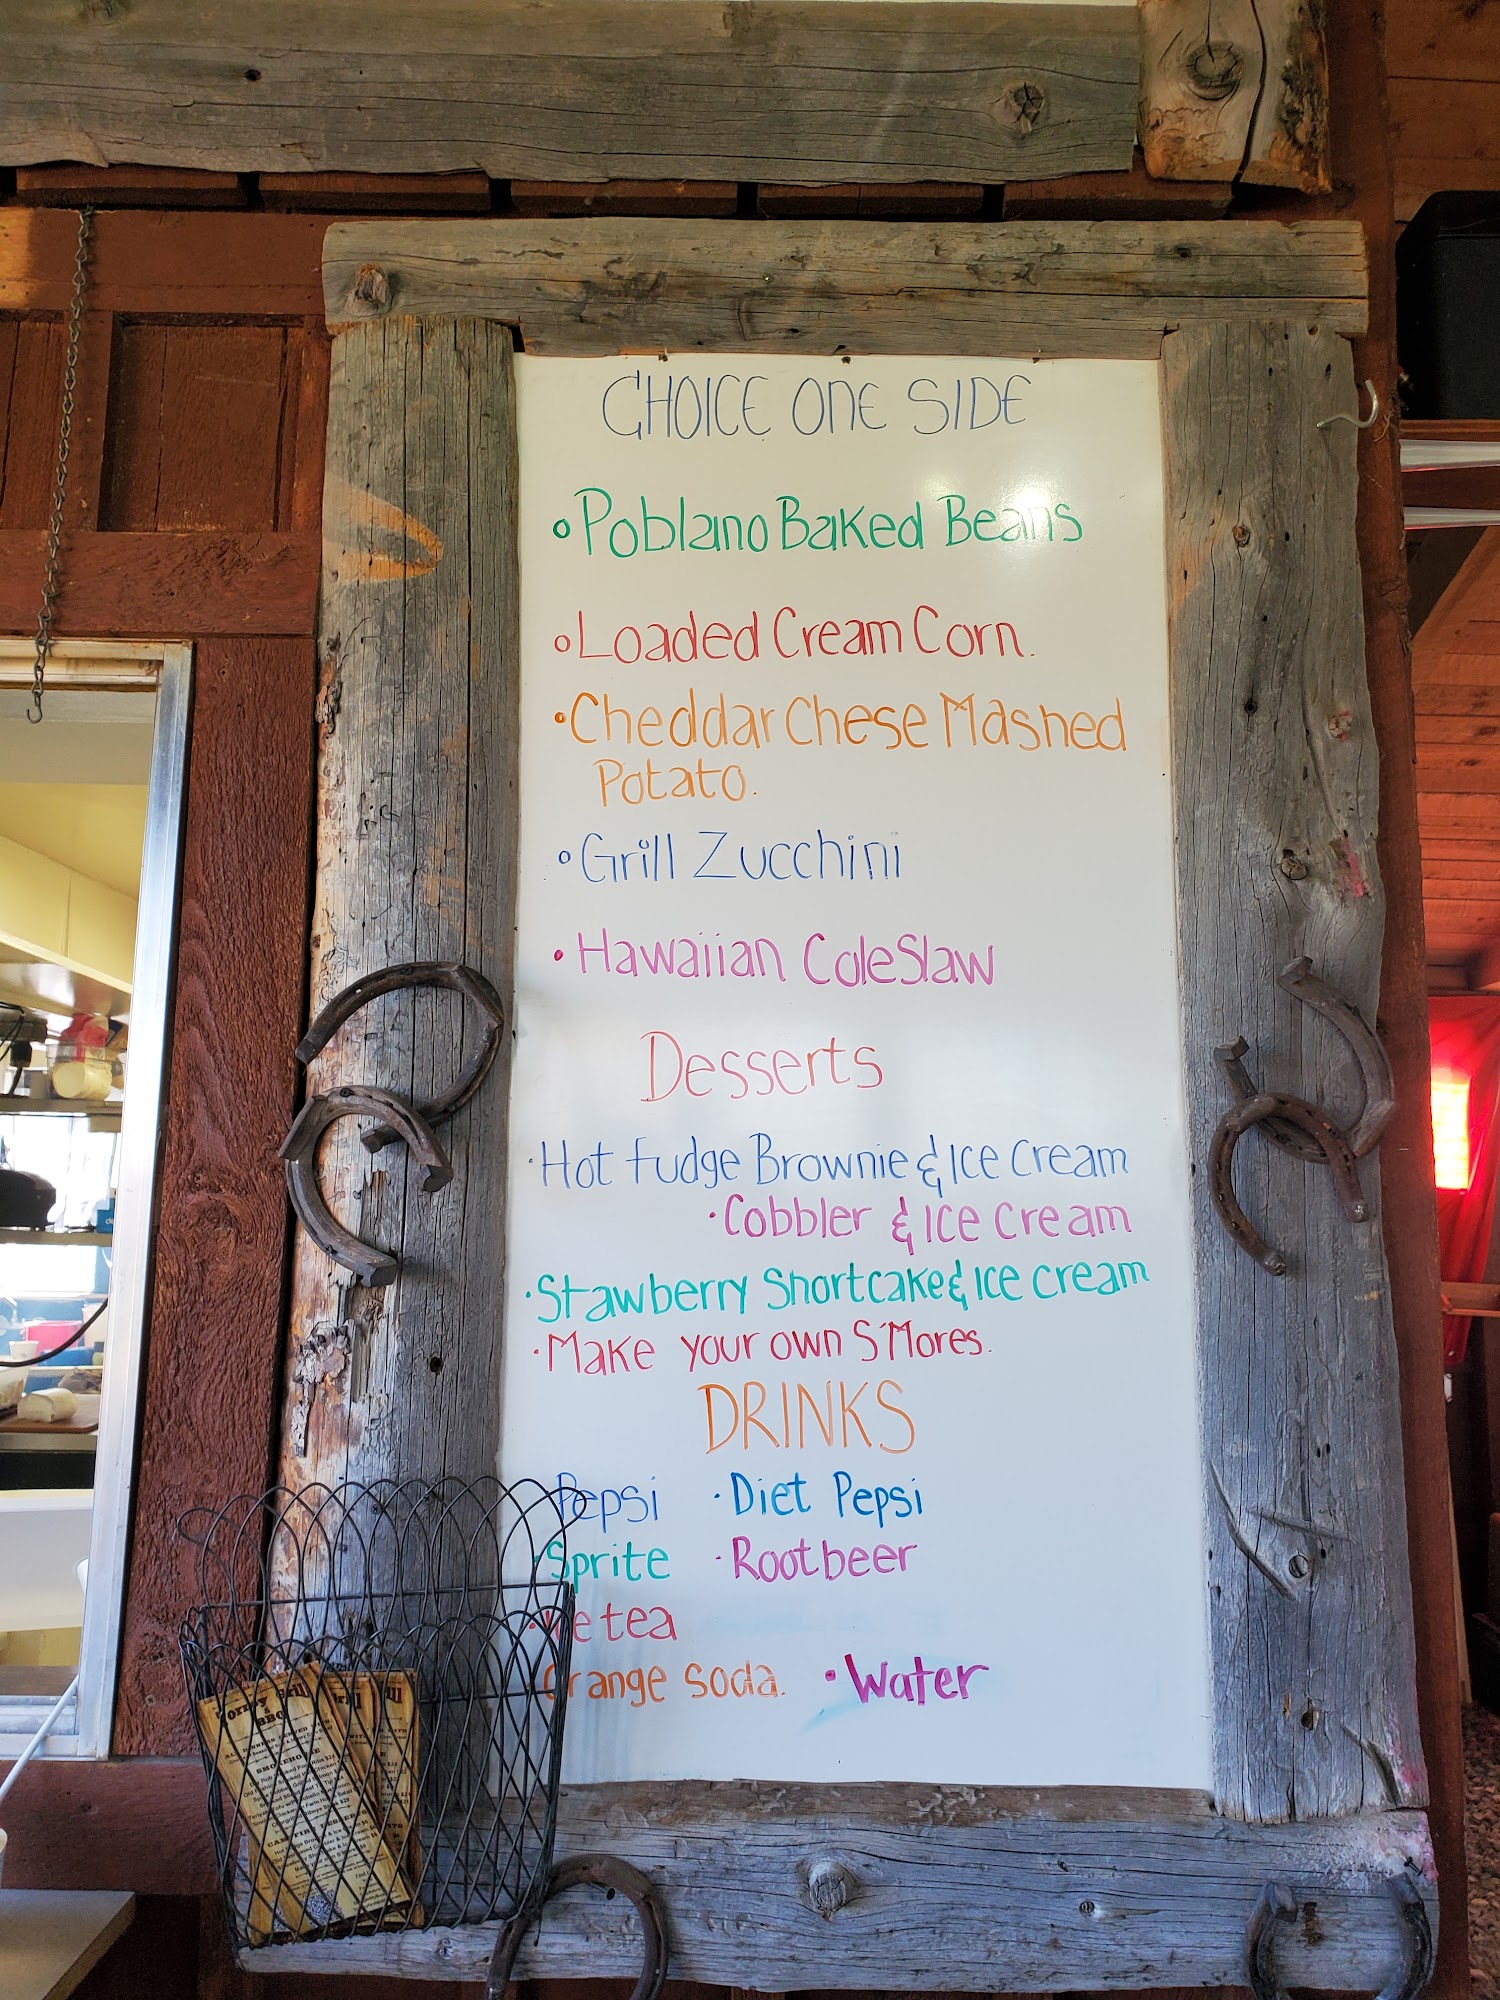 CHOICE ONE SIDE
Poblano Baked Beans
Loaded Cream Corn.
Cheddar Chese Mashed
Potato.
Grill Zucchini
Hawaiian ColeSlaw
Desserts
Hot Fudge Brownie & Ice Cream
Cobbler & Ice Cream
Stawberry Shortcake & Ice Cream
Make your own S'Mores.
DRINKS
Pepsi · Diet Pepsi
Sprite · Rootbeer
Ice tea
Orange Soda. · Water
BBQ
SMOKEHOUSE